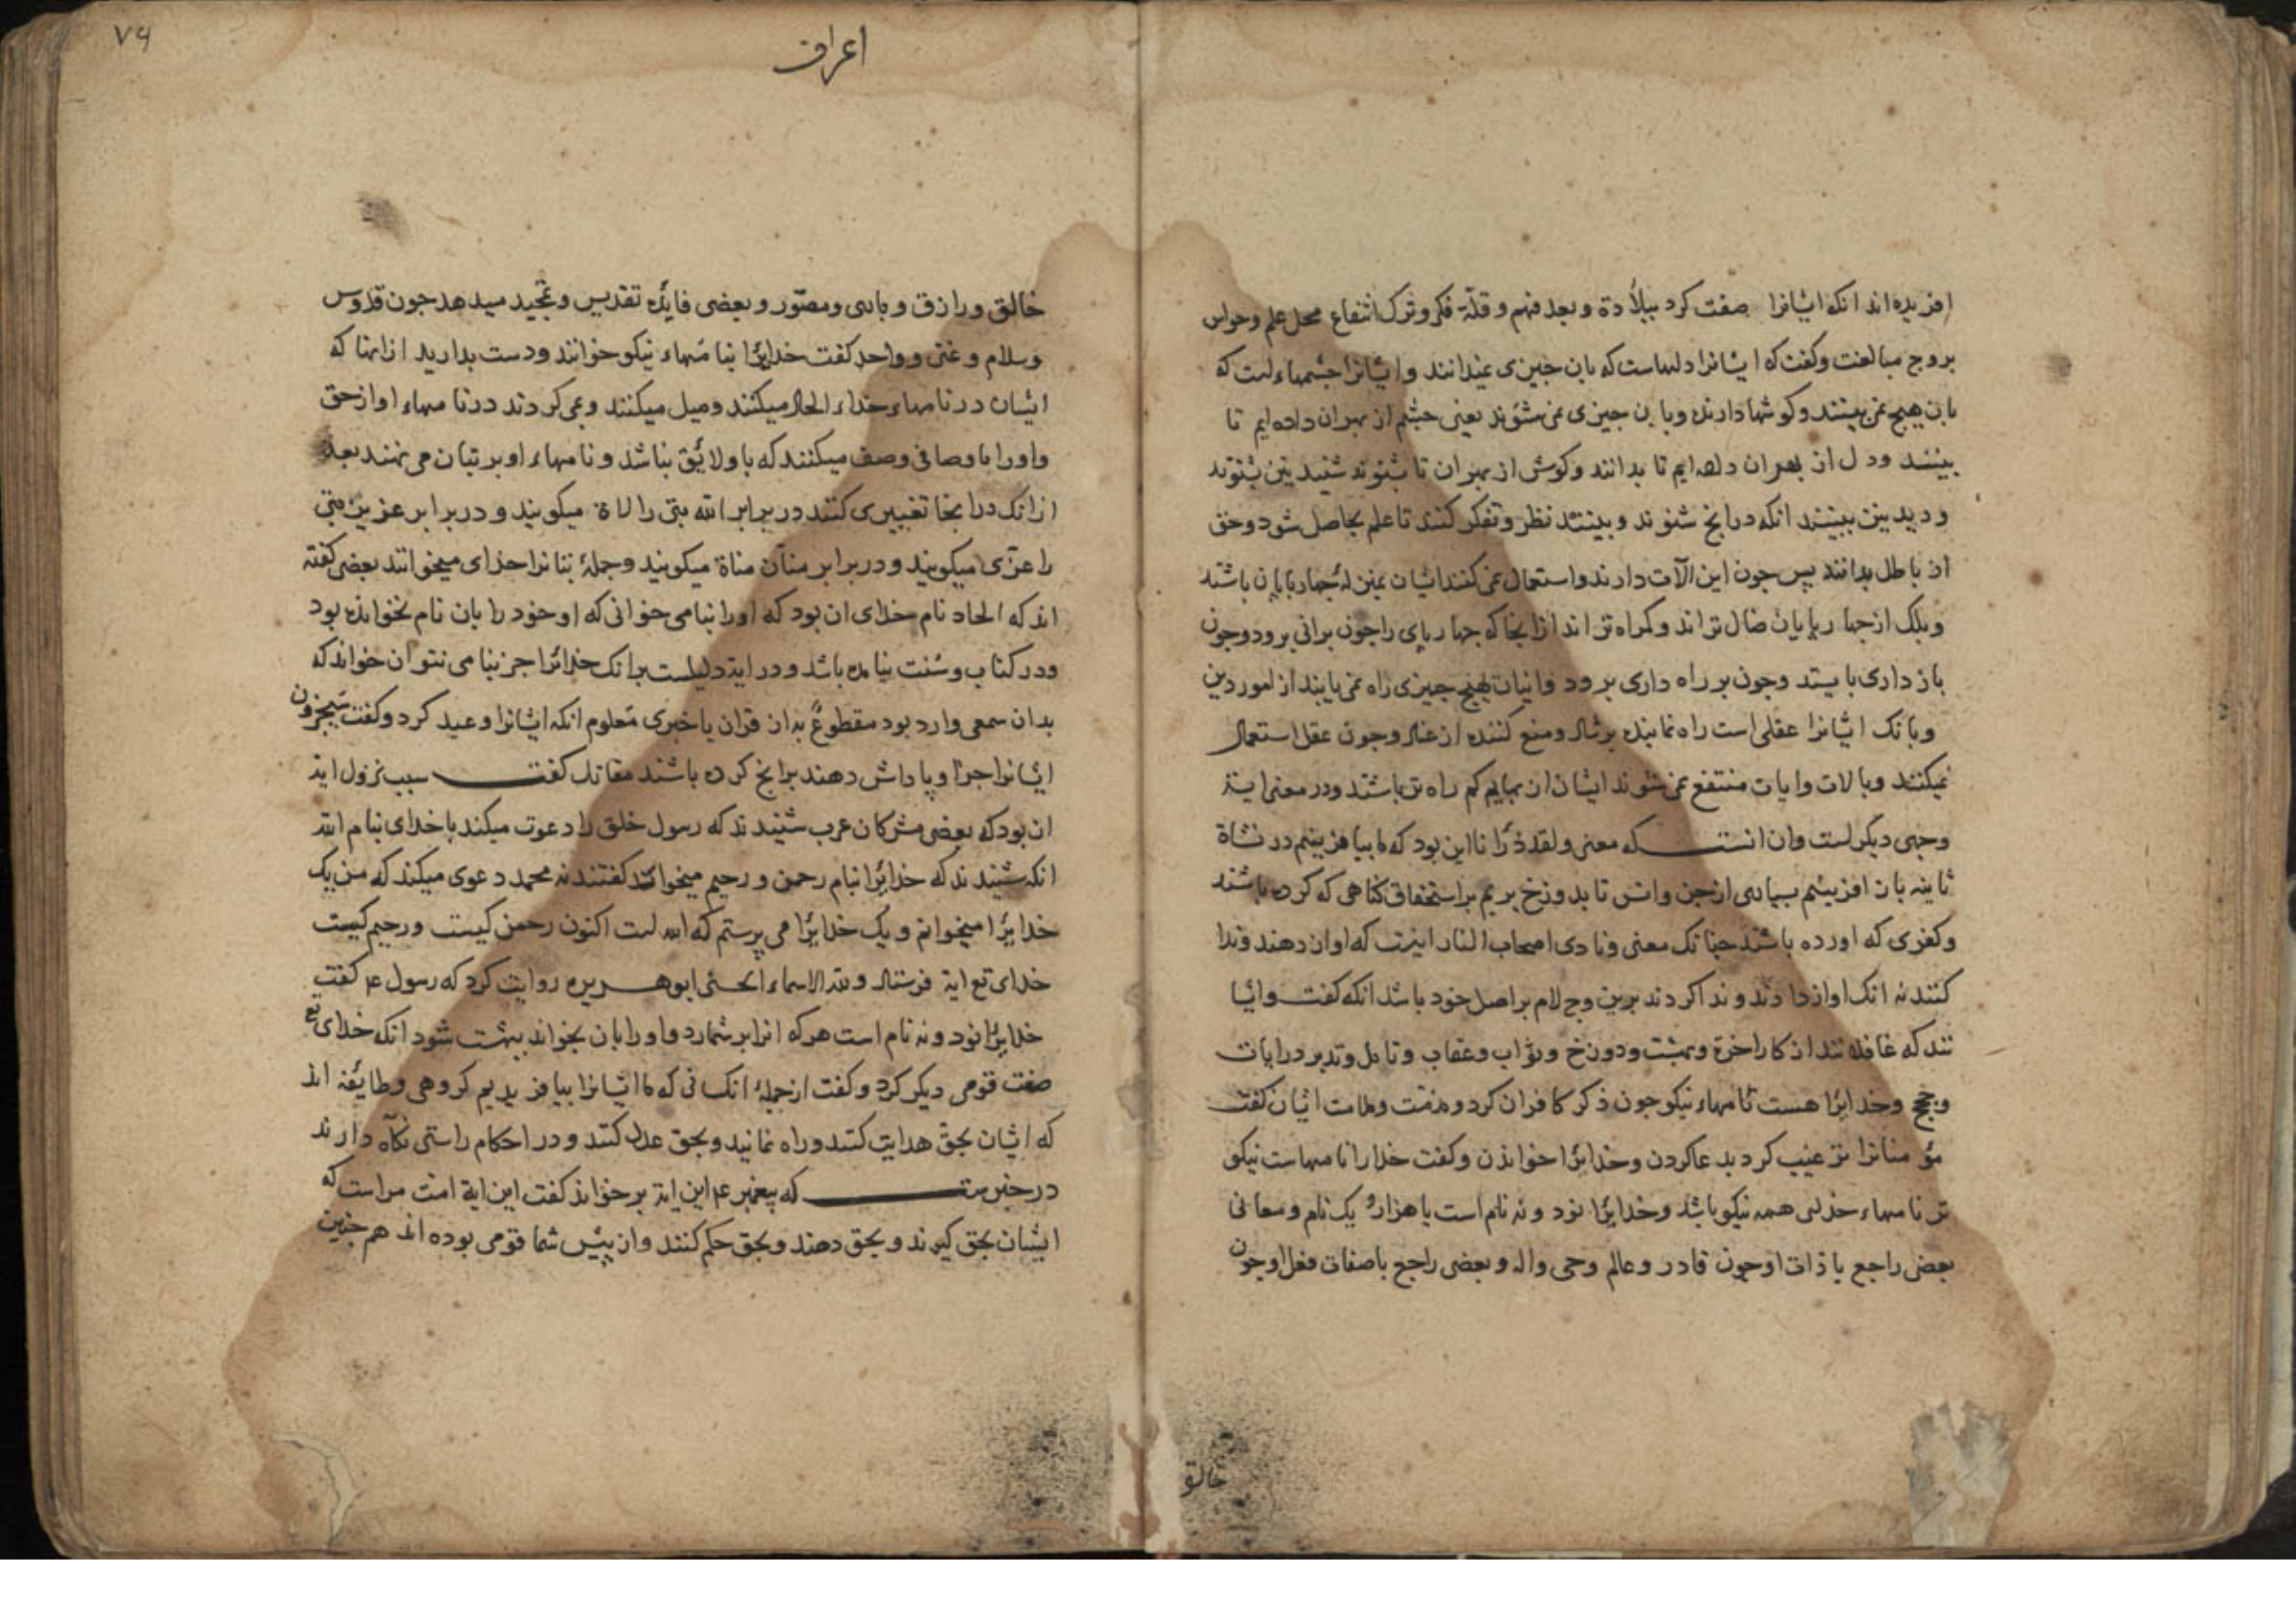 افریده اند انکه ایشانرا صفت کرد ببلادة و بعد فهم و قلّة فکر و ترک انتفاع محل علم و حواس
بر وجه مبالغت و کفت که ایشانرا دلهاست که بان جیزی نمیدانند و ایشانرا جشمهاء است که
بان هیج نمی بینند و کوشها دارند و بان جیزی نمی شنوند یعنی جشم از بهر ان داده ایم تا
بینند و دل از بهر ان داده ایم تا بدانند و کوش از بهر ان تا بشنوند شنیدنی بشنوند
و دیدنی ببینند انکه درانج شنوند و بینند نظر و تفکر کنند تا علم بحاصل شود و حق
از باطل بدانند پس جون این الآت دارند و استعمال نمی کنند ایشان بمنزلهٔ جهاربایان باشند
و بلک از جهاربایان ضال تراند و کمراه تراند ازانجا که جهاربای را جون برانی برود و جون
باز داری بایستد و جون بر راه داری برود و اینان بهیج جیزی راه نمی یابند از امور دین
و بانک ایشانرا عقلی است راه نماینده برشاد و منع کننده از عناد و جون عقل استعمال
نمیکنند و بالات و ایات منتفع نمی شوند ایشان از بهایم کم راه تر باشند و در معنی ایة
وجهی دیکر است و ان انست که معنی ولقد ذرأنا این بود که ما بیافرینیم در نشاة
ثانیه باز افرینیم بسیاری از جن و انس تا بدوزخ بریم بر استحقاق کناهی که کرده باشند
و کفری که اورده باشند جنانک معنی ونادی اصحاب النار اینست که اواز دهند و ندا
کنند نه انک اواز دادند و ندا کردند برین وجه لام بر اصل خود باشد انکه کفت و ایشا
نند که غافلانند از کار اخرة و بهشت و دوزخ و ثواب و عقاب و تامل و تدبر در ایات
و حجج و خدایرا هست نامهاء نیکو جون ذکر کافران کرد و مذمت و ملامت ایشان کفت
مؤمنانرا ترغیب کرد بدعا کردن و خدایرا خواندن و کفت خدا را نامهاست نیکو
تر نامهاء خدای همه نیکو باشد و خدایرا نود و نه نام است یا هزار و یک نام و معانی
بعضی راجع با ذات او جون قادر و عالم و حی و اله و بعضی راجع با صفات فعل او جون
خالق
٧٩
اعراف
خالق و رازق و باری و مصوّر و بعضی فایدهٔ تقدیس و تمجید میدهد جون قدّوس
و سلام و غنی و واحد کفت خدایرا بنامهاء نیکو خوانند و دست بدارید ازانها که
ایشان در نامهاء خداء الحاد میکنند و میل میکنند و می کردند در نامهاء او از حق
و اورا باوصافی وصف میکنند که باو لایق نباشد و نامهاء او بر بتان می نهند بعد
ازانک درانجا تغییری کنند در برابر الله بتی را لاة میکویند و در برابر عزیز بتی
را عزّی میکویند و در برابر منّان مناة میکویند و جملهٔ بتانرا خدای میخوانند بعضی کفته
اند که الحاد نام خدای ان بود که اورا بنامی خوانی که او خود را بان نام نخوانده بود
و در کتاب و سنت نیامده باشد و در ایة دلیلست برانک خدایرا جز بنامی نتوان خواند که
بدان سمعی وارد بود مقطوعٌ به از قران یا خبری معلوم انکه ایشانرا وعید کرد و کفت سیجزون
ایشانرا جزا و پاداش دهند برانج کرده باشند مقاتل کفت سبب نزول ایة
ان بود که بعضی مشرکان عرب شنیدند که رسول خلق را دعوت میکند با خدای بنام الله
انکه شنیدند که خدایرا بنام رحمن و رحیم میخواند کفتند نه محمد دعوی میکند که من یک
خدایرا میخوانم و یک خدایرا می پرستم که الله است اکنون رحمن کیست و رحیم کیست
خدای تع ایة فرستاد ولله الاسماء الحسنی ابوهریره روایت کرد که رسول ع م کفت
خدایرا نود و نه نام است هر که انرا بر شمارد و اورا بان بخواند ببهشت شود انکه خدای تع
صفت قومی دیکر کرد و کفت از جملهٔ انکسانی که ما ایشانرا بیافریدیم کروهی و طایفهٔ اند
که ایشان بحق هدایت کنند و راه نمایند و بحق عدل کنند و در احکام راستی نکاه دارند
در خبرست که پیغمبر ع م این ایة برخواند کفت این ایة امت مراست که
ایشان بحق کیرند و بحق دهند و بحق حکم کنند و از پیش شما قومی بوده اند هم جنین